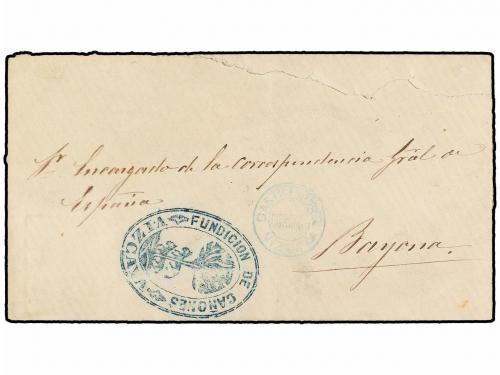 Sr. Encargado de la Correspondencia Gral. de
España
Bayona.
FUNDICION DE CAÑONES
VIZCAYA